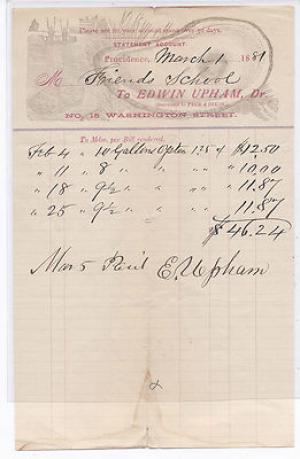 Please not let your account stand over 30 days.
STATEMENT ACCOUNT.
Providence, March 1 1881
M Friends School
To EDWIN UPHAM, Dr.
No. 18 WASHINGTON STREET.
To Mdse. per Bill rendered.
Feb 4 " 10 Gallons Oysters 125 $12.50
" 11 " 8 " " " 10.00
" 18 " 9½ " " " 11.87
" 25 " 9½ " " " 11.87
$46.24
Mar 5 Paid E. Upham